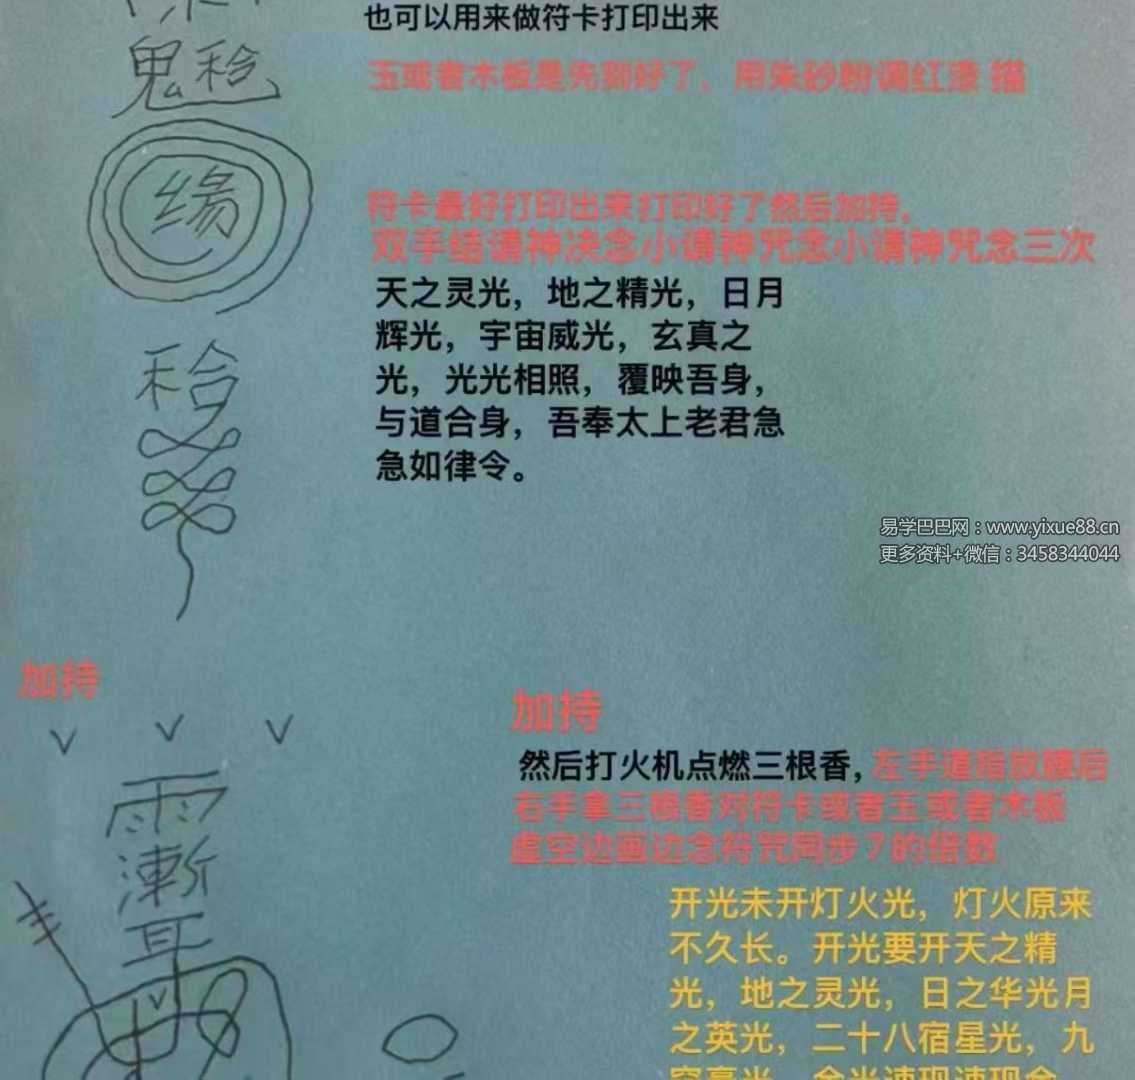 也可以用来做符卡打印出来
玉或者木板是先刻好了，用朱砂粉调红漆 描
鬼
缘
符卡最好打印出来打印好了然后加持，
双手结请神决念小请神咒念小请神咒念三次
天之灵光，地之精光，日月
辉光，宇宙威光，玄真之
光，光光相照，覆映吾身，
与道合身，吾奉太上老君急
急如律令。
易学巴巴网：www.yixue88.cn
更多资料+微信：3458344044
加持
加持
然后打火机点燃三根香，左手道指放腰后
右手拿三根香对符卡或者玉或者木板
虚空边画边念符咒同步7的倍数
雨
漸
耳
开光未开灯火光，灯火原来
不久长。开光要开天之精
光，地之灵光，日之华光月
之英光，二十八宿星光，九